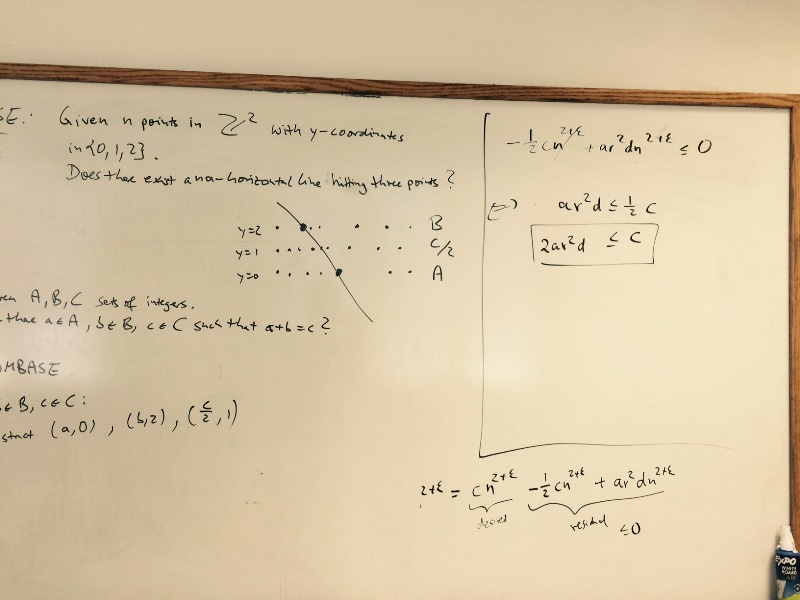 SE: Given n points in ℤ² with y-coordinates
in {0,1,2}.
Does there exist a non-horizontal line hitting three points?
y=2 B
y=1 C/2
y=0 A
A, B, C sets of integers.
there a∈A, b∈B, c∈C such that a+b=c?
MBASE
∈B, c∈C:
struct (a,0), (b,2), (c/2, 1)
-1/2 cn^{2+ε} + ar²dn^{2+ε} ≤ 0
ar²d ≤ 1/2 c
2ar²d ≤ c
2+ε = cn^{2+ε} -1/2 cn^{2+ε} + ar²dn^{2+ε}
desired residual ≤0
EXPO
WHITE
BOARD